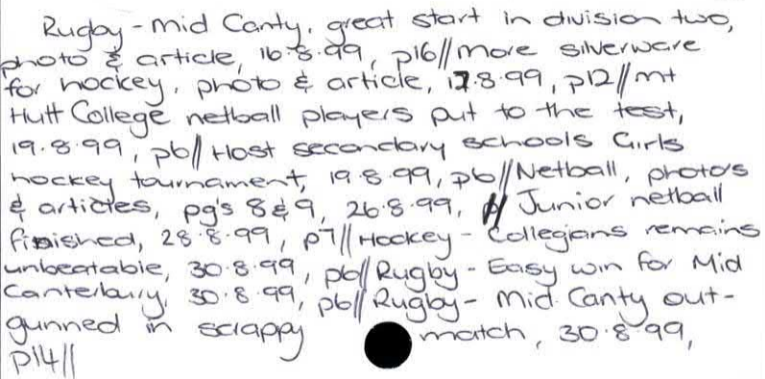 Rugby - Mid Canty, great start in division two,
photo & article, 16.8.99, p16//more silverware
for hockey, photo & article, 17.8.99, p12//mt
Hutt College netball players put to the test,
19.8.99, p6//Host secondary schools Girls
hockey tournament, 19.8.99, p6//Netball, photo's
& articles, pg's 8&9, 26.8.99, // Junior netball
finished, 28.8.99, p7//Hockey - Collegians remains
unbeatable, 30.8.99, p6//Rugby - Easy win for Mid
Canterbury, 30.8.99, p6//Rugby - Mid.Canty out-
gunned in scrappy match, 30.8.99,
p14//